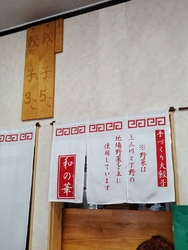 餃子 5、
餃子 3、
手づくり大餃子
※野菜は
上三川と下野の
地場野菜を主に
使用しています
和の華